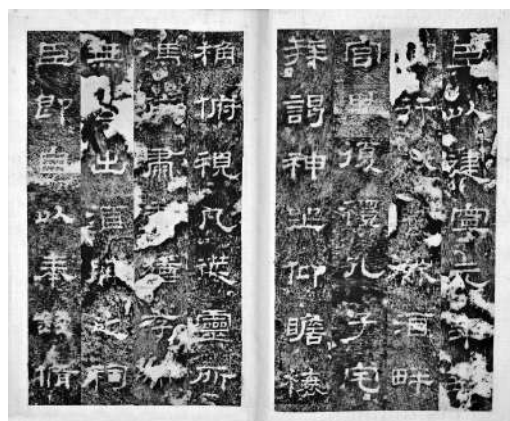 臣以建寧元年到
行秋飲酒畔
宮畢復禮孔子宅
拜謁神坐仰瞻榱
桷俯視几筵靈所
馮依肅猶存
無公出酒脯之祠
臣即自以奉錢脩